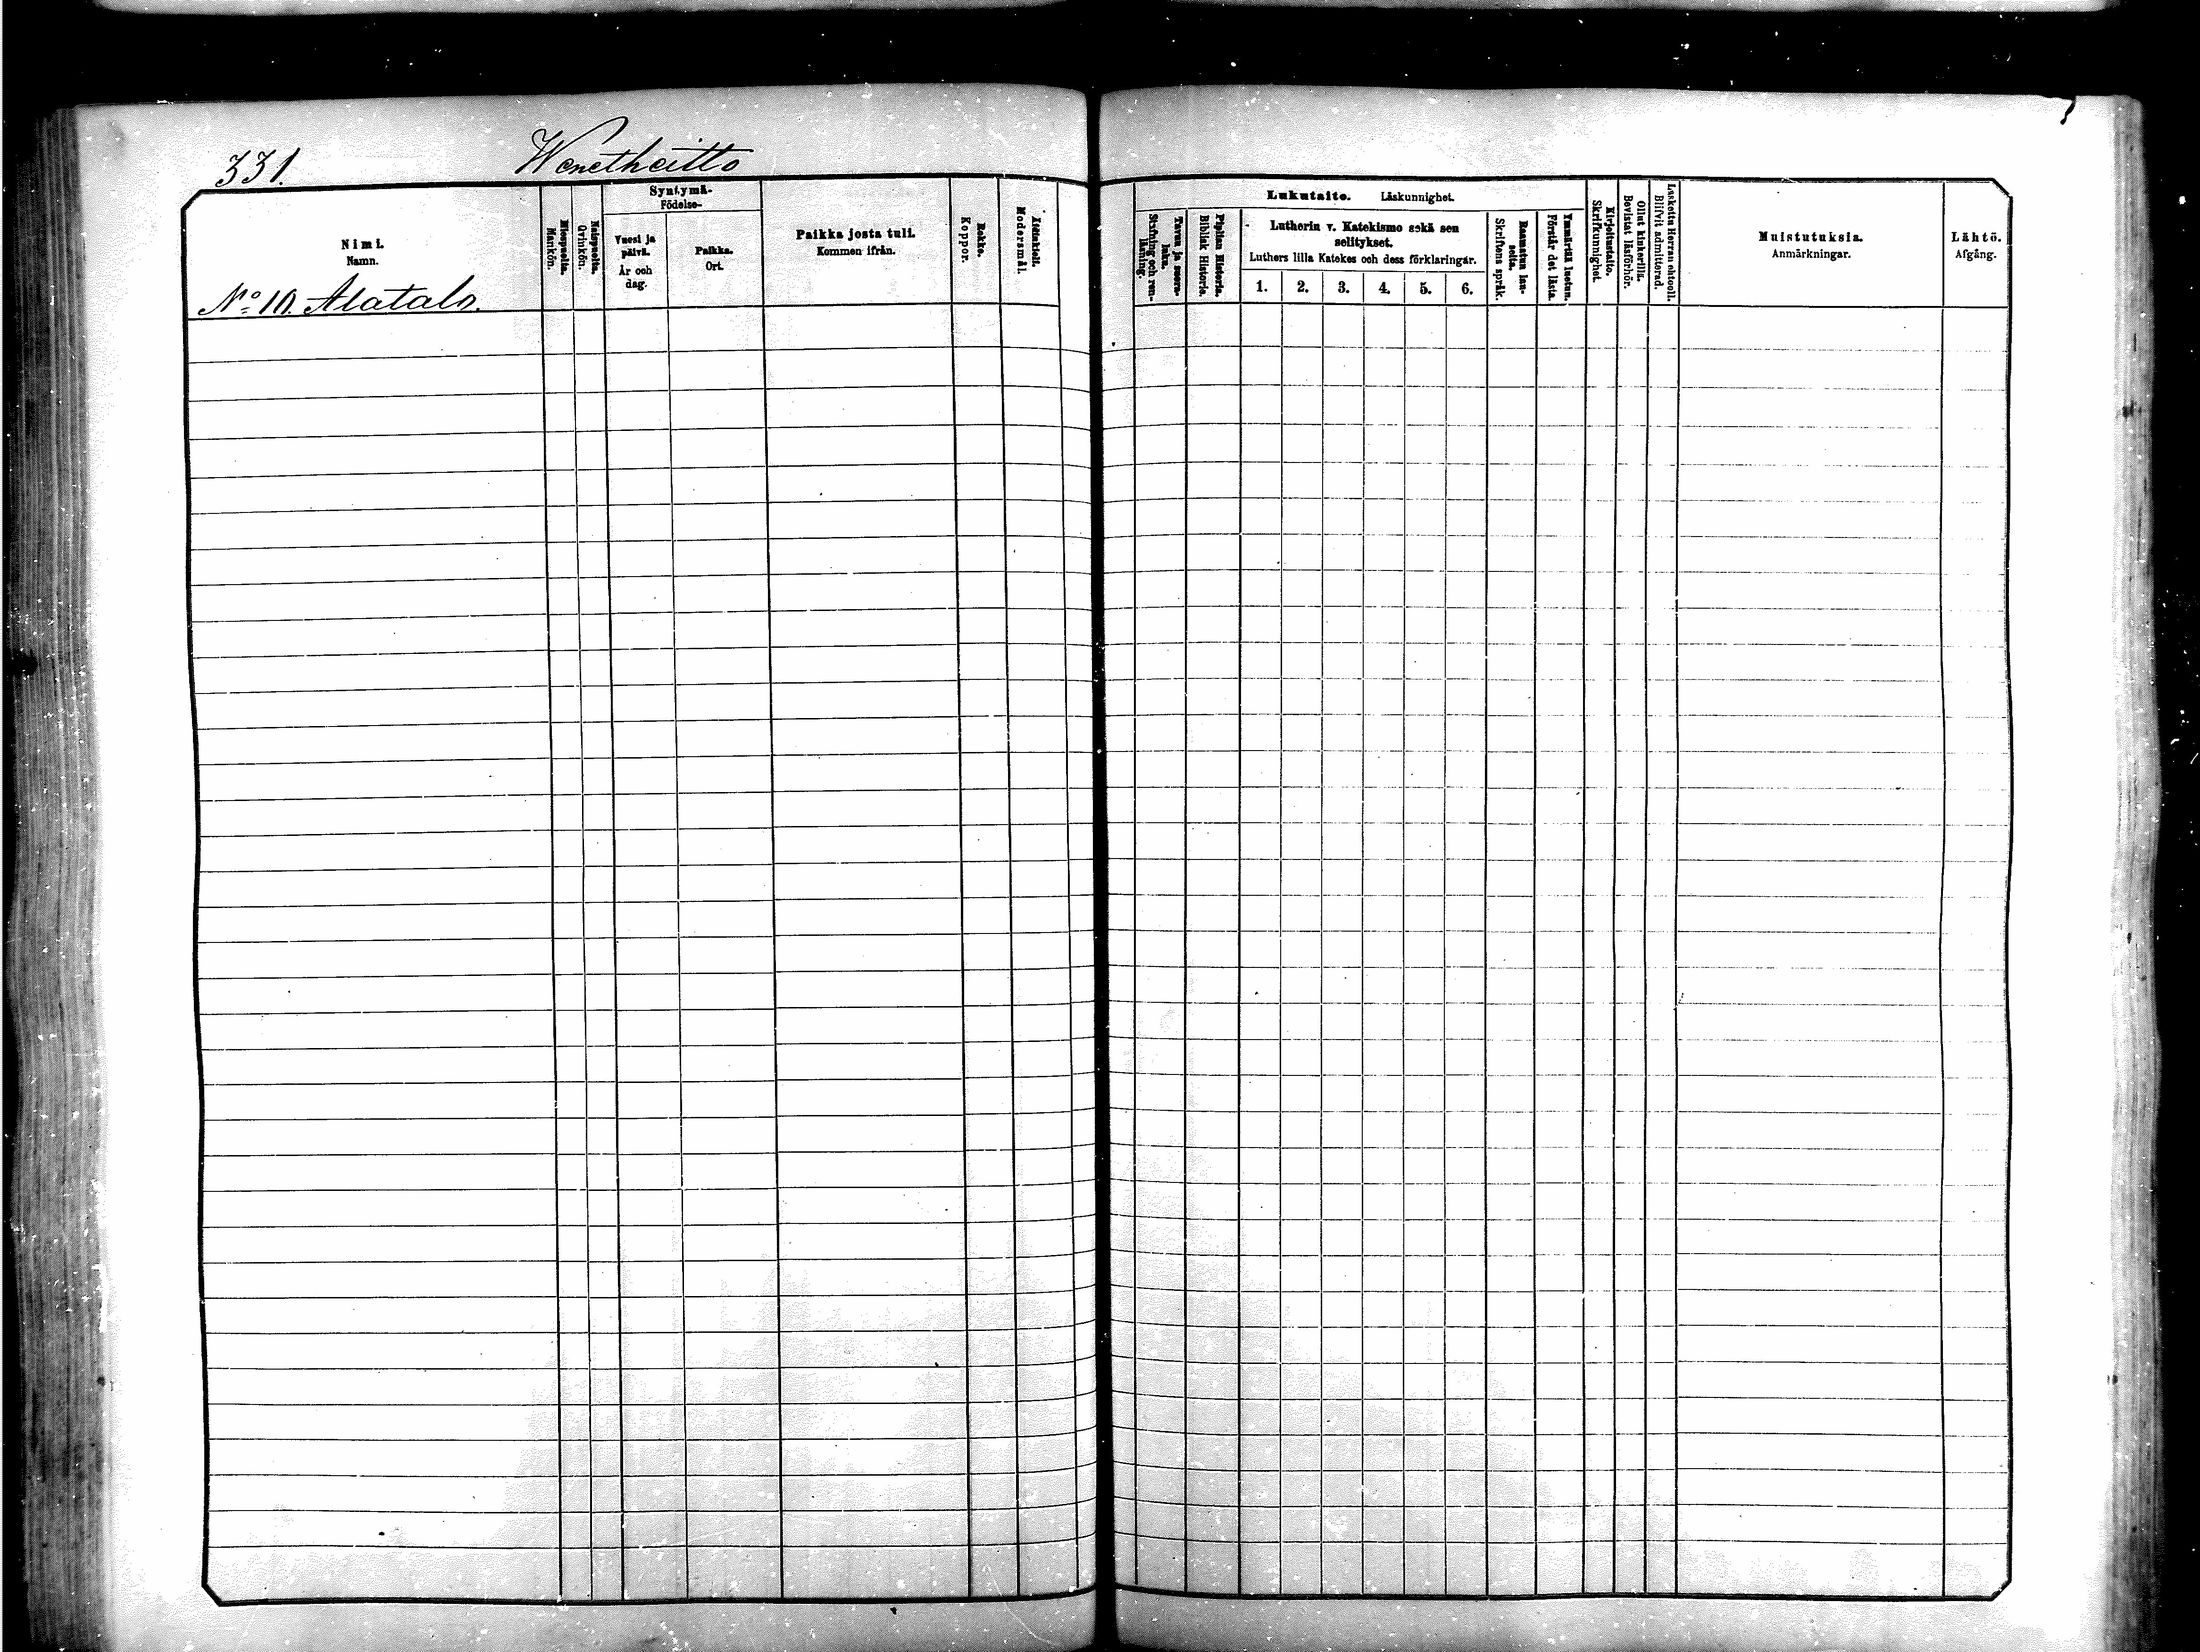 331.
Wenetheitto
Nimi.
Namn.
Miespuolia.
Mankön.
Naispuolia.
Qvinkön.
Syntymä-
Födelse-
Vuosi ja
päivä.
År och
dag.
Paikka.
Ort.
Paikka josta tuli.
Kommen ifrån.
Rokko.
Koppor.
Äidinkieli.
Modersmål.
No 10. Alatalo.
Lukutaito. Läskunnighet.
Tavuu ja suora-
luku.
Stafning och ren-
läsning.
Piplian Historia.
Biblisk Historia.
Lutherin v. Katekismo sekä sen
selitykset.
Luthers lilla Katekes och dess förklaringar.
1. 2. 3. 4. 5. 6.
Raamatun lau-
seita.
Skriftens språk.
Ymmärtää luetun.
Förstår det lästa.
Kirjoitustaito.
Skrifkunnighet.
Ollut kinkerillä.
Bevistat läsförhör.
Laskettu Herran ehtooll.
Blifvit admitterad.
Muistutuksia.
Anmärkningar.
Lähtö.
Afgång.